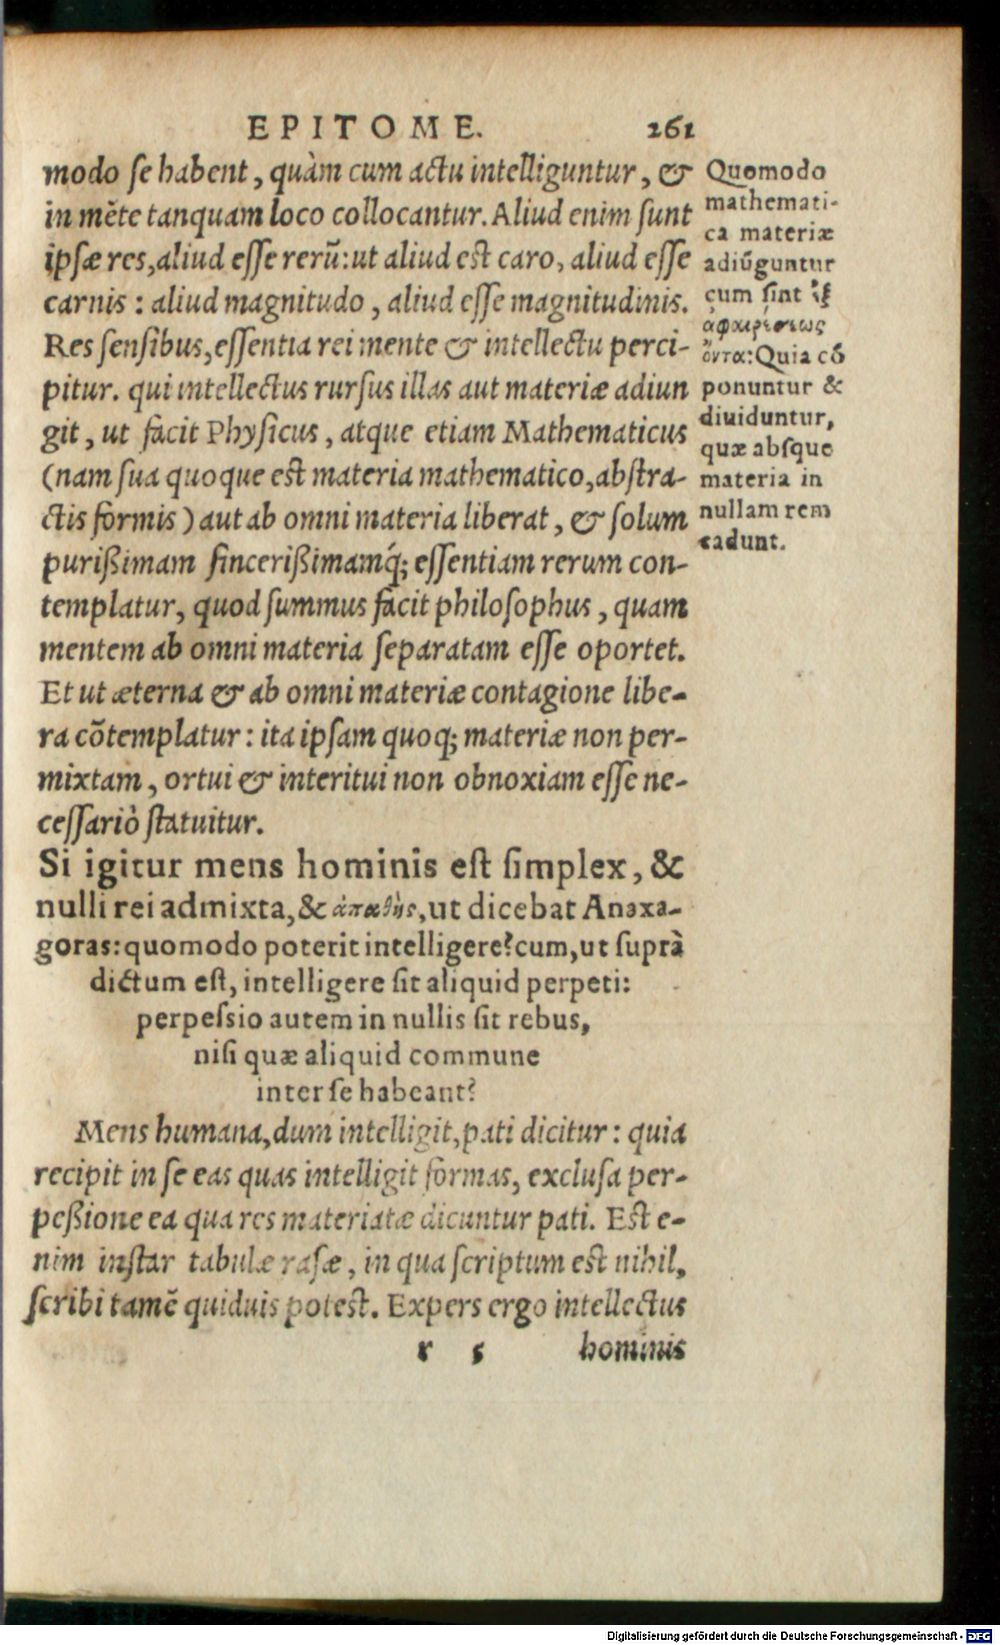 EPITOME. 261
modo ſe habent, quàm cum actu intelliguntur, &
in mẽte tanquam loco collocantur. Aliud enim ſunt
ipſæ res, aliud eſſe rerũ: ut aliud est caro, aliud eſſe
carnis: aliud magnitudo, aliud eſſe magnitudinis.
Res ſenſibus, eſſentia rei mente & intellectu perci-
pitur. qui intellectus rurſus illas aut materiæ adiun
git, ut facit Phyſicus, atque etiam Mathematicus
(nam ſua quoque est materia mathematico, abſtra-
ctis formis) aut ab omni materia liberat, & ſolum
purißimam ſincerißimamq́; eſſentiam rerum con-
templatur, quod ſummus facit philoſophus, quam
mentem ab omni materia ſeparatam eſſe oportet.
Et ut æterna & ab omni materiæ contagione libe-
ra cõtemplatur: ita ipſam quoq; materiæ non per-
mixtam, ortui & interitui non obnoxiam eſſe ne-
ceſſariò ſtatuitur.
Quomodo
mathemati-
ca materiæ
adiũguntur
cum ſint ἐξ
ἀφαιρέσεως
ὄντα: Quia cõ
ponuntur &
diuiduntur,
quæ abſque
materia in
nullam rem
cadunt.
Si igitur mens hominis eſt ſimplex, &
nulli rei admixta, & ἀπαθὴς, ut dicebat Anaxa-
goras: quomodo poterit intelligere? cum, ut ſuprà
dictum eſt, intelligere ſit aliquid perpeti:
perpeſsio autem in nullis ſit rebus,
niſi quæ aliquid commune
inter ſe habeant?
Mens humana, dum intelligit, pati dicitur: quia
recipit in ſe eas quas intelligit formas, excluſa per-
peßione ea qua res materiatæ dicuntur pati. Est e-
nim inſtar tabulæ raſæ, in qua ſcriptum est nihil,
ſcribi tamẽ quiduis potest. Expers ergo intellectus
r 5 hominis
Digitalisierung gefördert durch die Deutsche Forschungsgemeinschaft - DFG